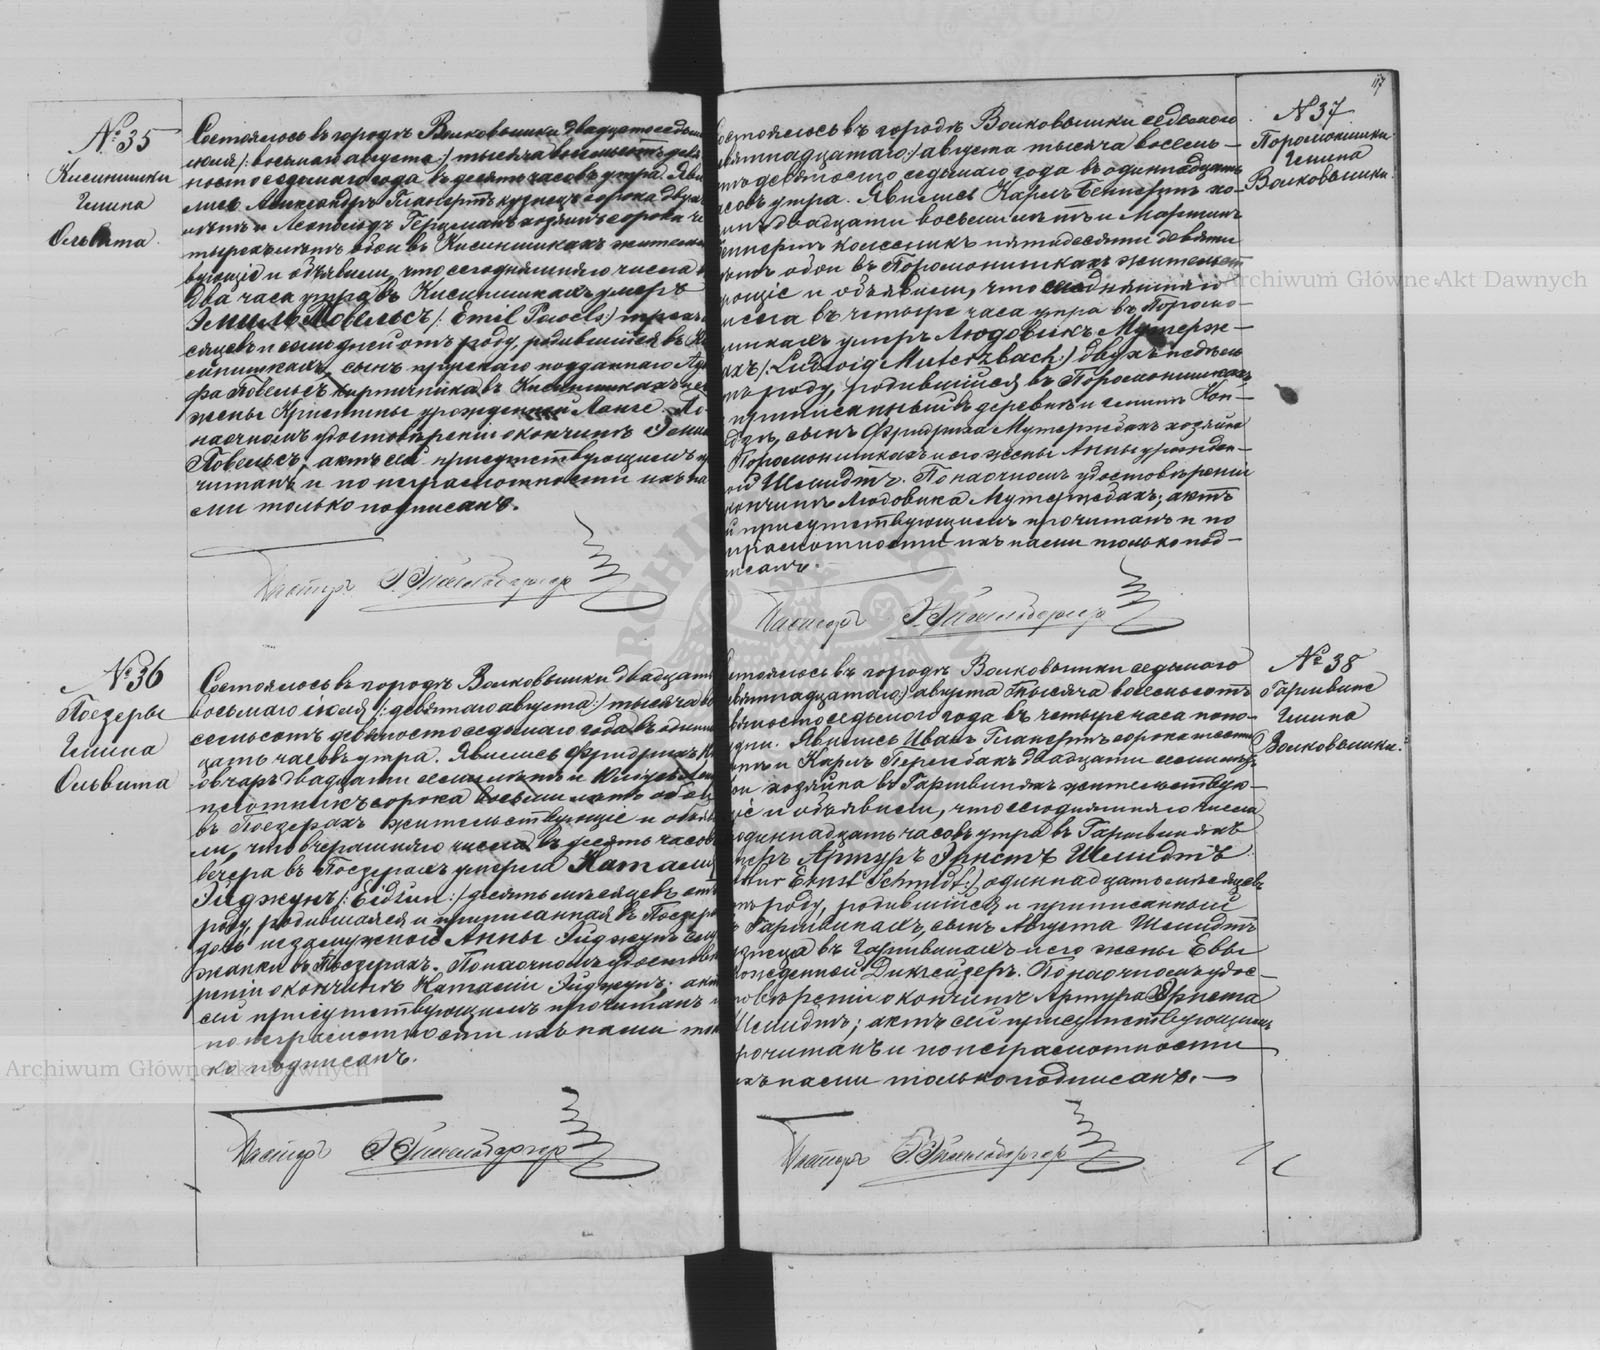 № 35
Кисинишки
Гмина
Ольвита
Состоялось въ городѣ Волковышки двадцать седьмаго
июля /: восьмаго августа :/ тысяча восемьсотъ девя
носто седьмаго года въ десять часовъ утра. Яви
лись Александръ кузнецъ сорока двухъ
лѣтъ и Леопольдъ Германъ хозяинъ сорока че
тырехъ лѣтъ обои въ Кисинишкахъ жительст
вующіе и объявили, что сегодняшняго числа въ
два часа утра въ Кисинишкахъ умеръ
Эмиль Повельсъ /: Emil Pawels :/ трехъ мѣ
сяцевъ и семи дней отъ роду, родившійся въ Ки
синишкахъ, сынъ прусскаго подданнаго
Повельсъ кирпичника въ Кисинишкахъ и его
жены Христины урожденной Ланге. По
наочномъ удостовѣреніи о кончинѣ Эмиля
Повельсъ, актъ сей присутствующимъ про
читанъ и по неграмотности ихъ на
ми только подписанъ.
Пасторъ
№ 36
Поезеры
Гмина
Ольвита
Состоялось въ городѣ Волковышки двадцать
восьмаго июля /: девятаго августа :/ тысяча во
семьсотъ девяносто седьмаго года въ одинна
дцать часовъ утра. Явились Фридрихъ
овчаръ двадцати семи лѣтъ и
плотникъ сорока восьми лѣтъ обои
въ Поезерахъ жительствующіе и объяви
ли, что вчерашняго числа въ десять часовъ
вечера въ Поезерахъ умерла Наталія
Эйджунъ /: Eidzun :/ десять мѣсяцевъ отъ
роду, родившаяся и приписанная въ Поезерахъ
дочь незамужней Анны Эйджунъ слу
жанки въ Поезерахъ. По наочномъ удостовѣ
реніи о кончинѣ Наталіи Эйджунъ, актъ
сей присутствующимъ прочитанъ и
по неграмотности ихъ нами толь
ко подписанъ.
Пасторъ
117
№ 37
Поромонишки
Гмина
Волковышки.
Состоялось въ городѣ Волковышки седьмаго
девятнадцатаго :/ августа тысяча восемь-
сотъ девяносто седьмаго года въ одиннадцать
часовъ утра. Явились Карлъ Геннертъ хо-
зяинъ двадцати восьми лѣтъ и Мартинъ
Геннертъ колесникъ пятидесяти девяти
лѣтъ обои въ Поромонишкахъ жительст
вующіе и объявили, что сегодняшняго
числа въ четыре часа утра въ Поромо-
нишкахъ умеръ Людовикъ Мутерж-
бахъ /: Ludwig Muterzbach :/ двухъ недѣль
отъ роду, родившійся въ Поромонишкахъ
приписанный въ деревнѣ и гминѣ
сынъ Фридриха Мутержбахъ хозяина
Поромонишкахъ и его жены Анны урожден-
ной Шмидтъ. По наочномъ удостовѣреніи
кончинѣ Людовика Мутержбахъ; актъ
й присутствующимъ прочитанъ и по
неграмотности ихъ нами только под-
писанъ.
Пасторъ
№ 38
Гаришвине
Гмина
Волковышки.
Состоялось въ городѣ Волковышки седьмаго
девятнадцатаго :/ августа тысяча восемьсотъ
девяносто седьмаго года въ четыре часа попо-
лудни. Явились Иванъ сорока шести
лѣтъ и Карлъ двадцати семи лѣтъ
ои хозяйна въ Гаришвиняхъ жительствую-
щіе и объявили, что сегодняшняго числа
одиннадцать часовъ утра въ Гаришвиняхъ
умеръ Артуръ Эрнстъ Шмидтъ
Arthur Ernst Schmidt :/ одиннадцать мѣсяцевъ
отъ роду, родившійся и приписанный
Гаришвинахъ, сынъ Августа Шмидтъ
кузнеца въ Гаришвинахъ и его жены Евы
рожденной По наочномъ удос-
товѣреніи о кончинѣ Артура Эрнста
Шмидтъ; актъ сей присутствующимъ
прочитанъ и по неграмотности
ихъ нами только подписанъ.
Пасторъ
Archiwum Główne Akt Dawnych
Archiwum Główne Akt Dawnych